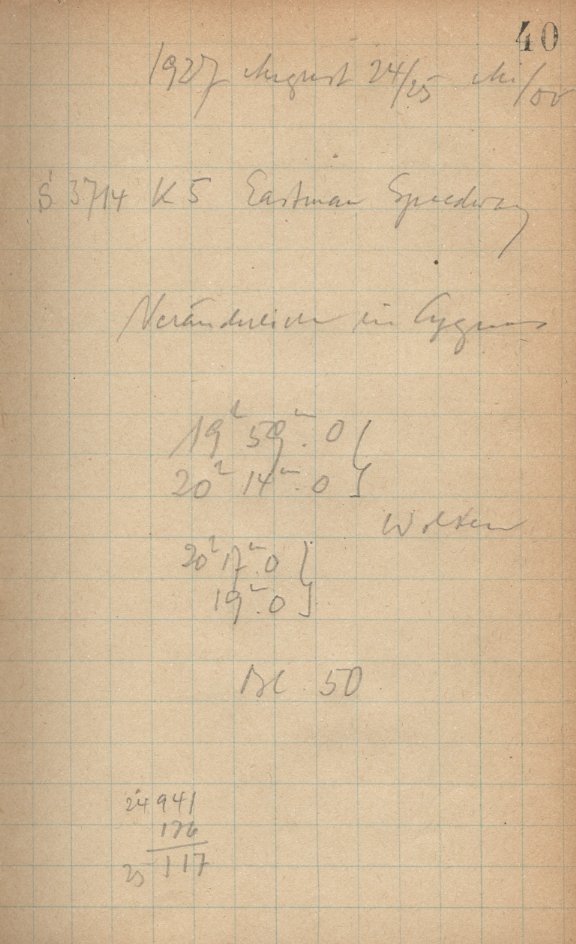 40
1927 August 24/25 Mi/Do
S 3714 K 5 Eastman Speedway
Veränderliche in Cygnus
19ʰ 59ᵐ.0 }
20ʰ 14ᵐ.0 }
Wolken
20ʰ 17ᵐ.0 }
19ᵐ.0 }
Bl 50
24 941
176
25 117